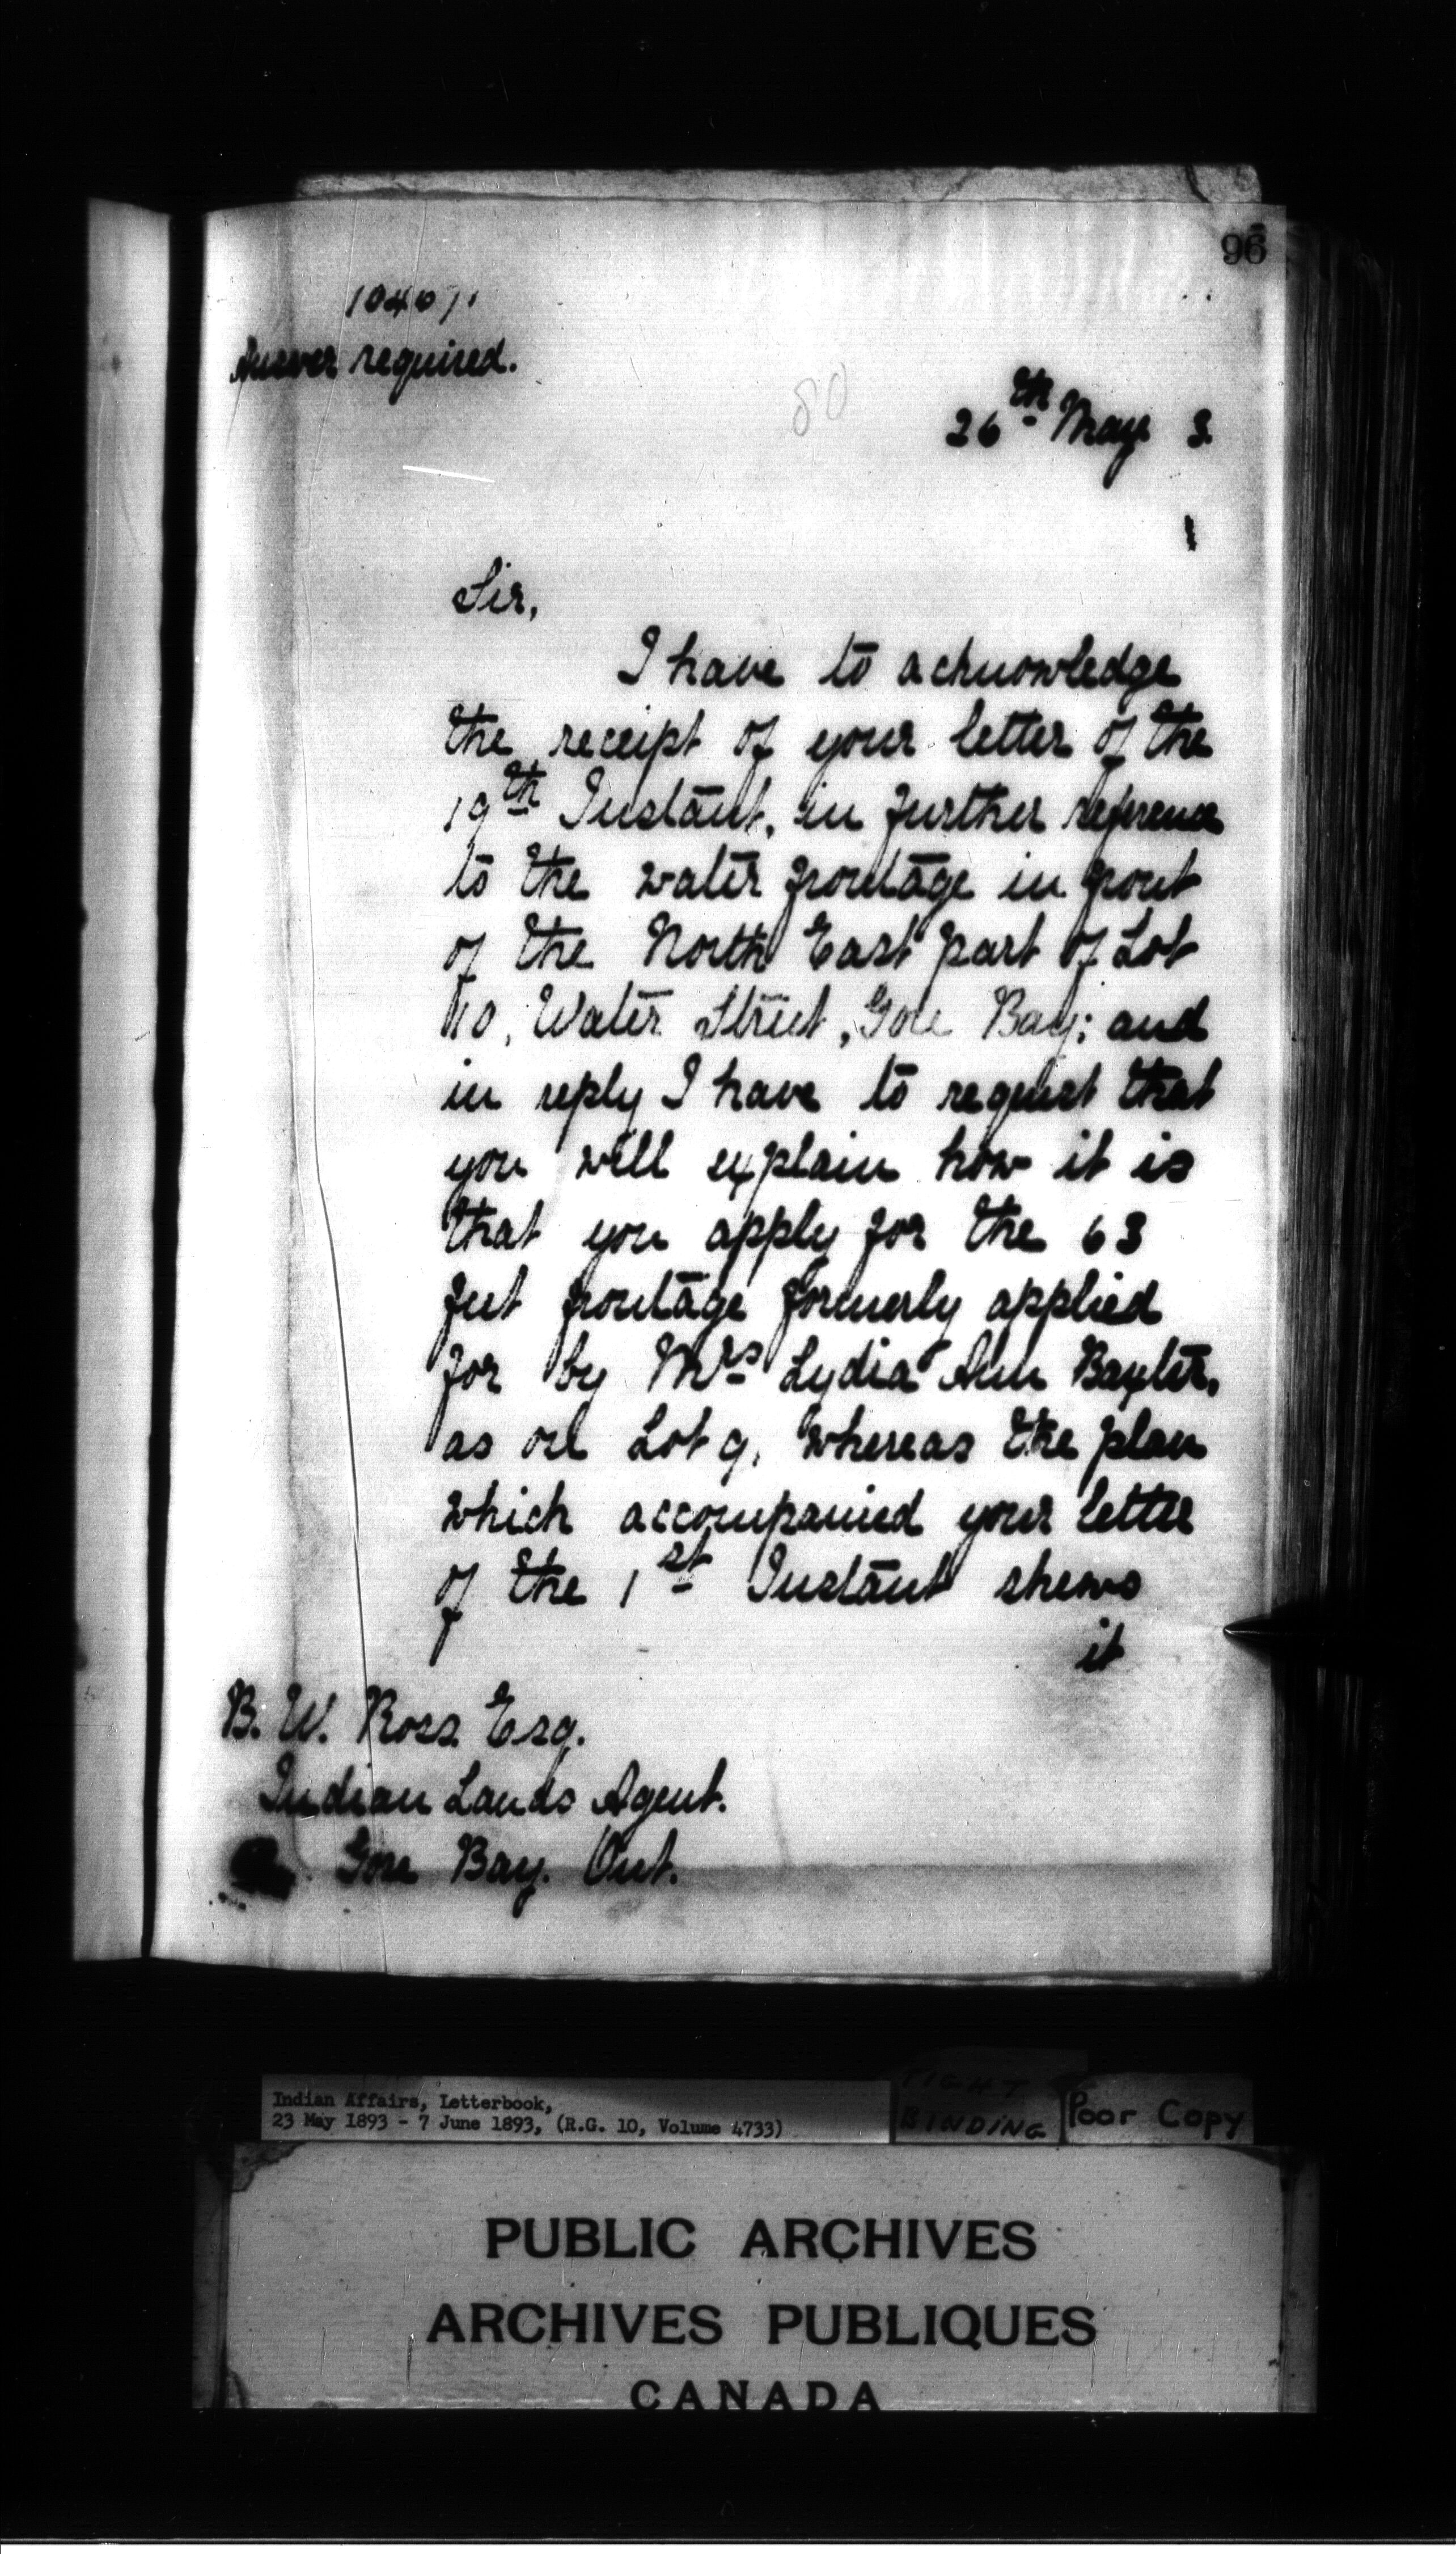 96
10401.
Answer required.
80
26th May 3
Sir,
I have to acknowledge
the receipt of your letter of the
19th Instant, in further reference
to the water frontage in front
of the North East part of Lot
10, Water Street, Gore Bay; and
in reply I have to request that
you will explain how it is
that you apply for the 63
feet frontage formerly applied
for by Mrs Lydia Ann Baxter,
as on Lot 9, whereas the plan
which accompanied your letter
of the 1st Instant shews
it
B. W. Ross Esq.
Indian Lands Agent.
Gore Bay. Ont.
Indian Affairs, Letterbook,
23 May 1893 - 7 June 1893, (R.G. 10, Volume 4733)
TIGHT
BINDING
Poor Copy
PUBLIC ARCHIVES
ARCHIVES PUBLIQUES
CANADA